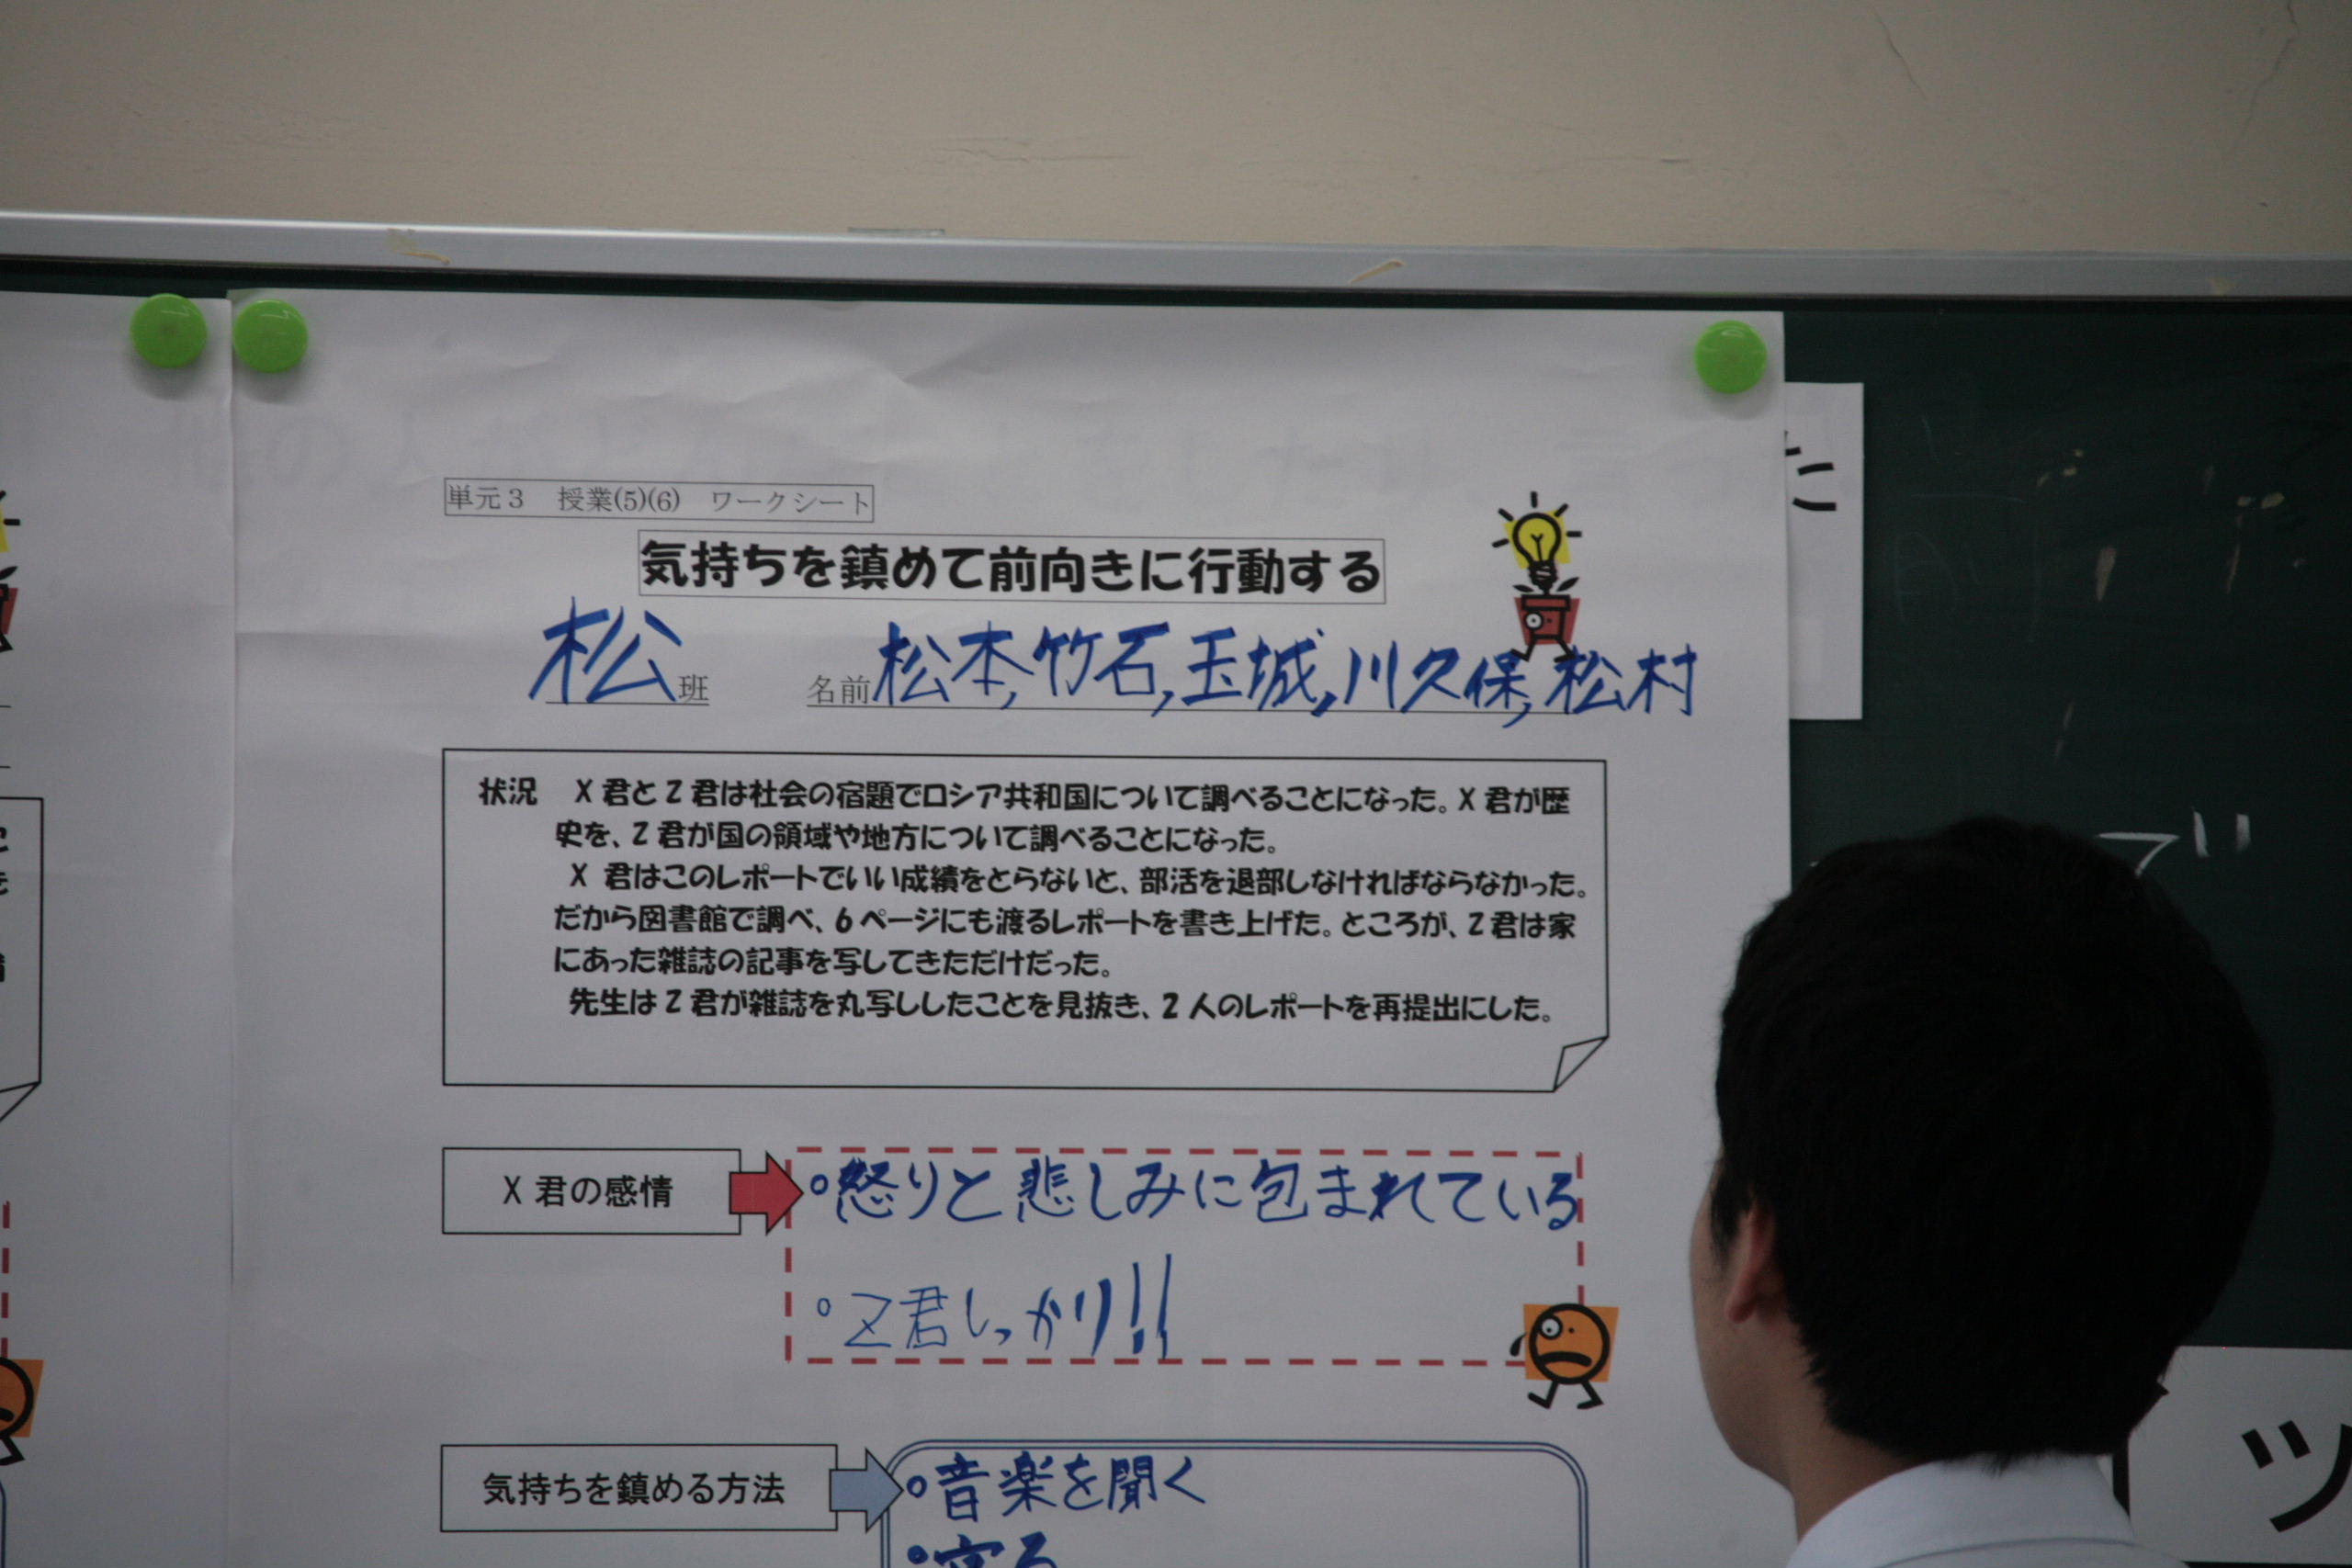 単元3 授業(5)(6) ワークシート
気持ちを鎮めて前向きに行動する
松班 名前 松本,竹石,玉城,川久保,松村
状況 X君とZ君は社会の宿題でロシア共和国について調べることになった。X君が歴
史を、Z君が国の領域や地方について調べることになった。
X君はこのレポートでいい成績をとらないと、部活を退部しなければならなかった。
だから図書館で調べ、6ページにも渡るレポートを書き上げた。ところが、Z君は家
にあった雑誌の記事を写してきただけだった。
先生はZ君が雑誌を丸写ししたことを見抜き、2人のレポートを再提出にした。
X君の感情
。怒りと悲しみに包まれている
。Z君しっかり!!
気持ちを鎮める方法
。音楽を聞く
ツ